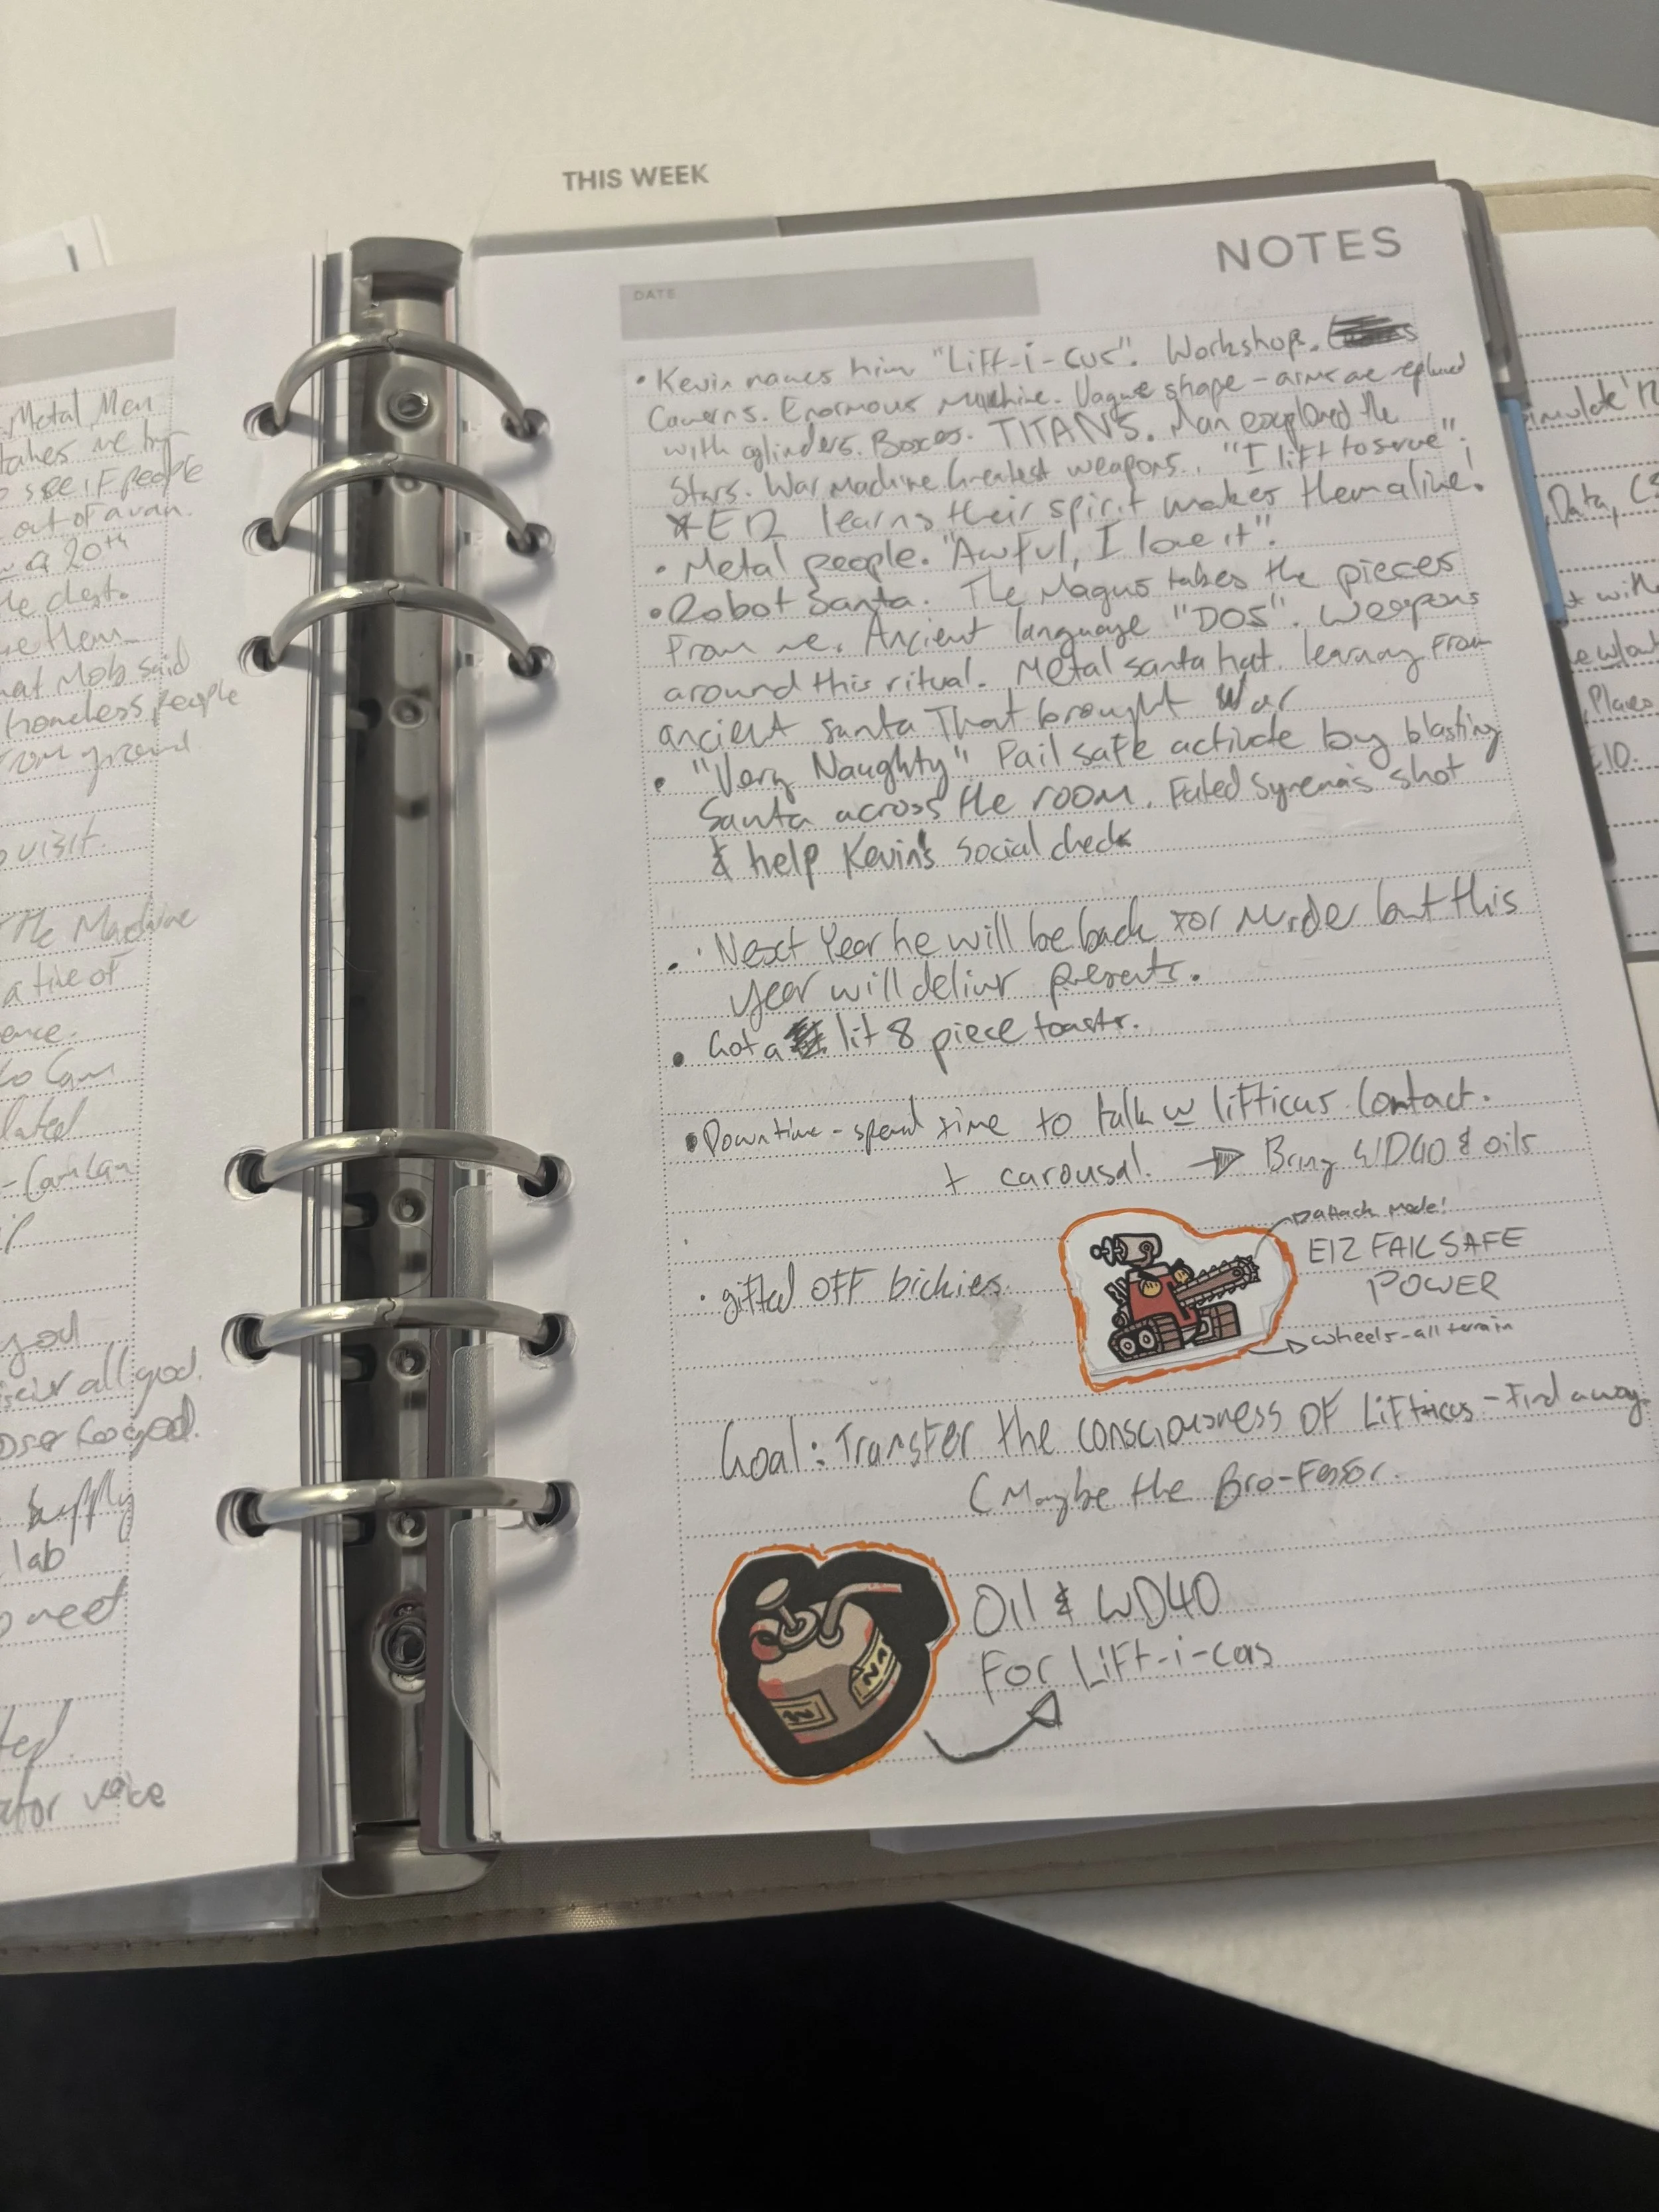 THIS WEEK
NOTES
DATE
• Kevin names him "Lift-i-cus". Workshop.
Caverns. Enormous Machine. Vague shape - arms are replaced
with cylinders. Boxes. TITANS. Man explored the
Stars. War Machine Greatest weapons. "I lift to serve".
* E12 learns their spirit makes them alive!
• Metal people. "Awful, I love it".
• Robot Santa. The Magus takes the pieces
From me. Ancient language "DOS". Weapons
around this ritual. Metal santa hat. learning From
ancient santa That brought War
• "Very Naughty" Fail safe activate by blasting
Santa across the room. Failed Syrena's shot
& help Kevin's social check
• Next Year he will be back for murder but this
year will deliver presents.
• Got a lit 8 piece toastr.
• Downtime - spend time to talk w lifticus. Contact.
+ carousal. → Bring WD40 & oils
attack mode!
E12 FAILSAFE
POWER
• gifted OFF bickies.
wheels - all terrain
Goal: Transfer the consciousness OF Lifticus - Find a way.
( Maybe the Bro-Fessor.
Oil & WD40
For Lift-i-cus
Metal Men
takes me
see if people
out of a van.
a 20th
Mob said
homeless people
from ground
visit.
the Machine
a time of
Cam
you
all good.
supply
lab
meet
voice
Data,
Places
E10.